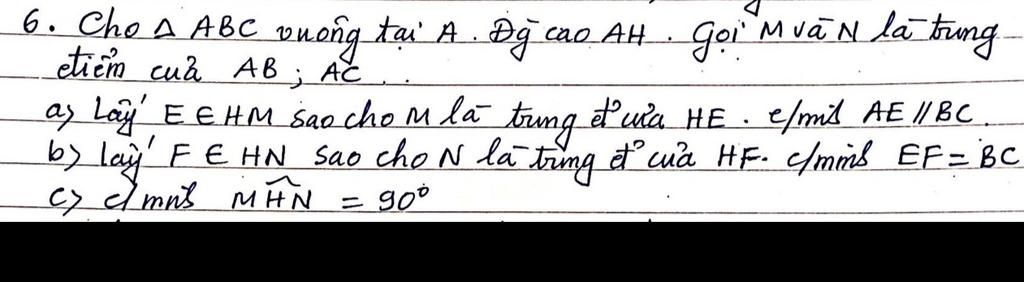 6. Cho Δ ABC vuông tại A. Đg cao AH. Gọi M và N là trung
điểm của AB; AC
a) Lấy E ∈ HM sao cho M là trung đ' của HE. c/m AE // BC.
b) lấy F ∈ HN sao cho N là trung đ' của HF. c/minh EF = BC
c) c/minh MHN = 90°